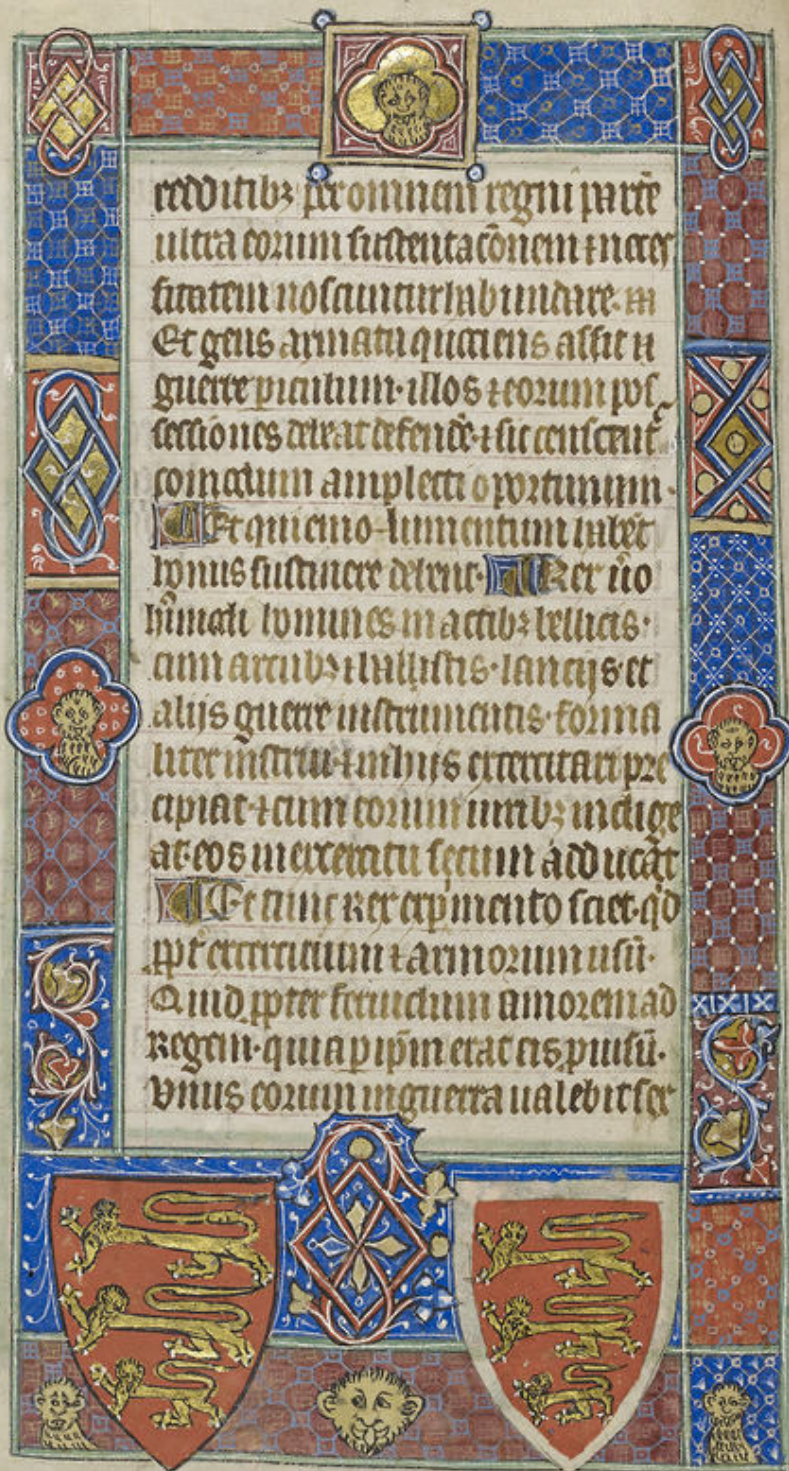 redditibꝫ per omnem regni parte
ultra eorum sustentacōnem ⁊ neces
sitatem noscuntur habundare. in
Et gens armata quociens assit n
guerre piculum· illos ⁊ eorum pos
sessiones debeat defendē· ⁊ sic censeut᷑
comodum amplecti oportunum·
Et qui emo-lumentum habēt
honus sustinere debent· Rex ūo
hmōdi homines in actibꝫ bellicis·
cum arcubꝫ ⁊ balistis· lanceis et
alijs guerre instrumentis· forma
liter instrui· ⁊ in hijs exercitari pre
cipiat· ⁊ cum eorum iuribꝫ indige
at· eos in exercitu secum adducat
Et tunc Rex expimento sciet· qd
ppt̄ exercicium ⁊ armorum usū·
Quid ppter feruidum amorem ad
Regem· quia p ipm erat eis puisū·
Vnus eorum in guerra ualebit sex